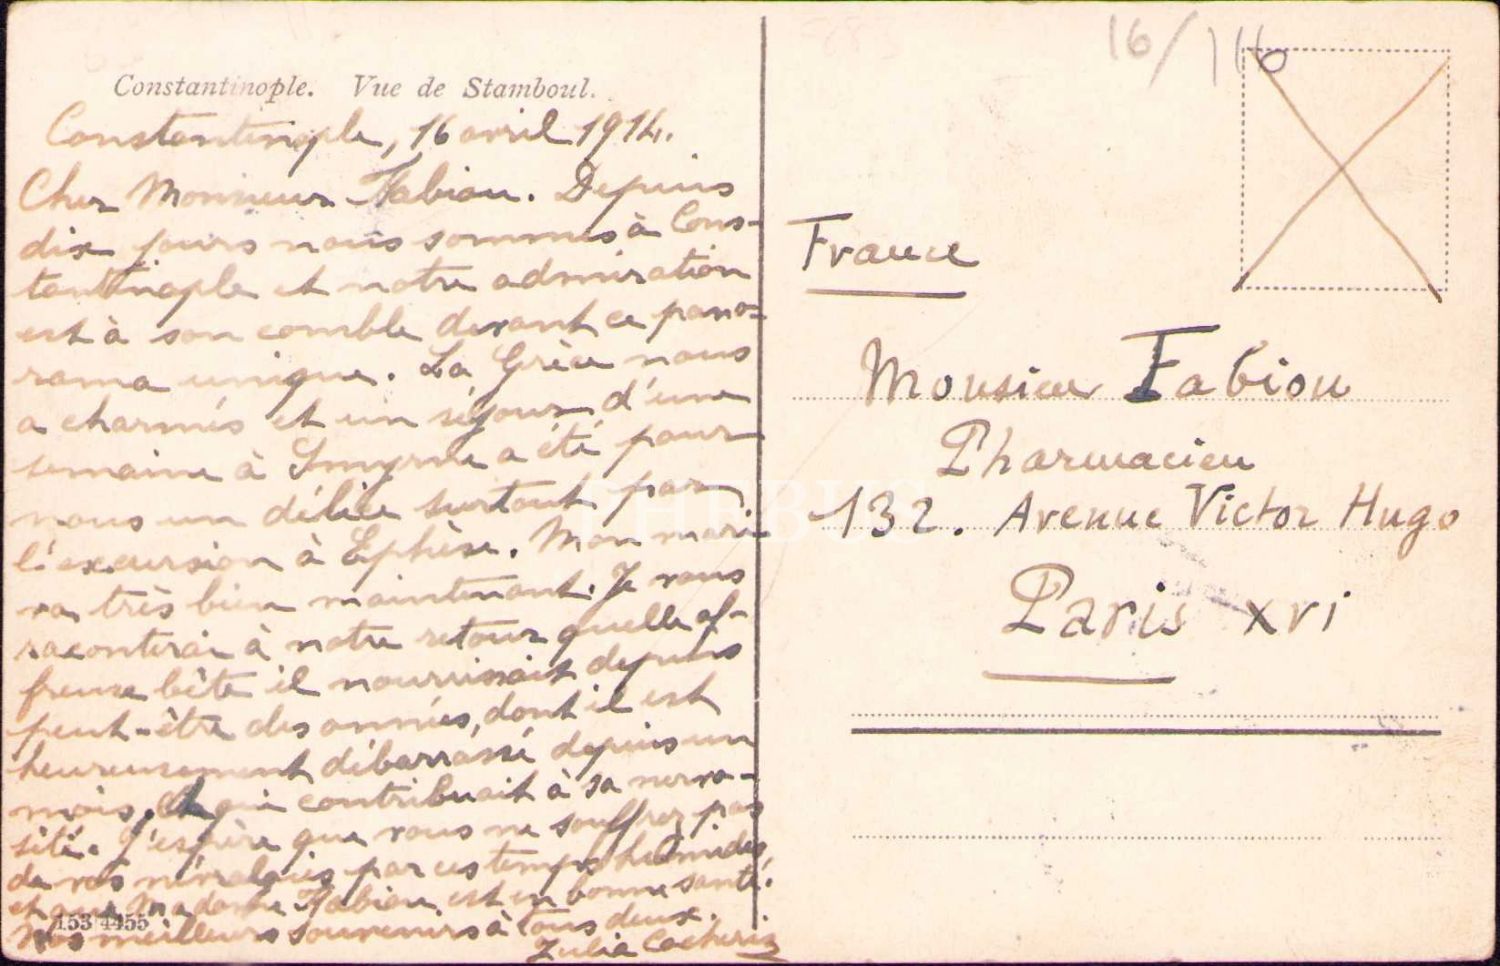 Constantinople. Vue de Stamboul.
Constantinople, 16 avril 1914.
Cher Monsieur Fabiou. Depuis
dix jours nous sommes à Cons-
tantinople et notre admiration
est à son comble devant ce pano-
rama unique. La Grèce nous
a charmés et un séjour d'une
semaine à Smyrne a été pour
nous un délice surtout par
l'excursion à Ephèse. Mon mari
va très bien maintenant. Je vous
raconterai à notre retour quelle af-
freuse bête il nourrissait depuis
peut-être des années, dont il est
heureusement débarrassé depuis un
mois, et qui contribuait à sa nervo-
sité. J'espère que vous ne souffrez pas
de vos névralgies par ces temps humides,
et que Madame Fabiou est en bonne santé.
Nos meilleurs souvenirs à tous deux.
Zulia
153 4455
16/116
France
Monsieur Fabiou
Pharmacien
132. Avenue Victor Hugo
Paris XVI
PHEBUS